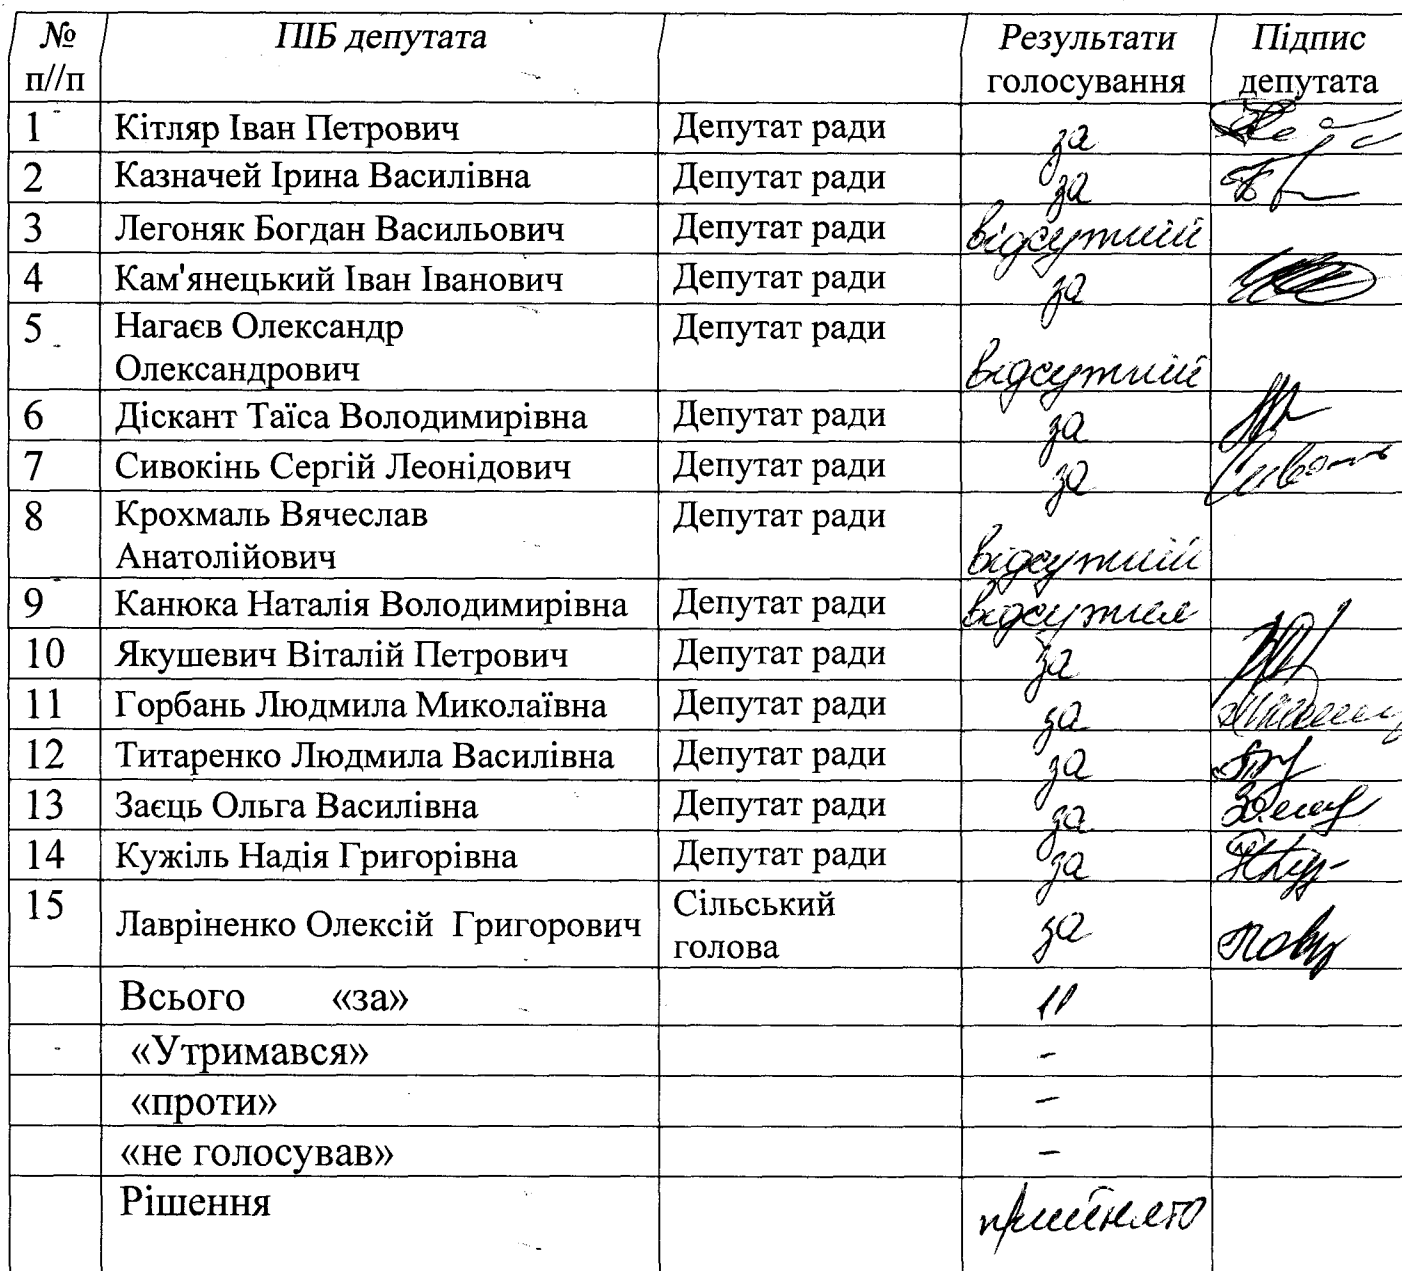 № ПІБ депутата Результати Підпис
п//п голосування депутата
1 Кітляр Іван Петрович Депутат ради за
2 Казначей Ірина Василівна Депутат ради за
3 Легоняк Богдан Васильович Депутат ради відсутній
4 Кам'янецький Іван Іванович Депутат ради за
5 Нагаєв Олександр Депутат ради
Олександрович відсутній
6 Діскант Таїса Володимирівна Депутат ради за
7 Сивокінь Сергій Леонідович Депутат ради за
8 Крохмаль Вячеслав Депутат ради
Анатолійович відсутній
9 Канюка Наталія Володимирівна Депутат ради відсутня
10 Якушевич Віталій Петрович Депутат ради за
11 Горбань Людмила Миколаївна Депутат ради за
12 Титаренко Людмила Василівна Депутат ради за
13 Заєць Ольга Василівна Депутат ради за
14 Кужіль Надія Григорівна Депутат ради за
15 Лавріненко Олексій Григорович Сільський за
голова
Всього «за» 11
«Утримався» -
«проти» -
«не голосував» -
Рішення прийнято